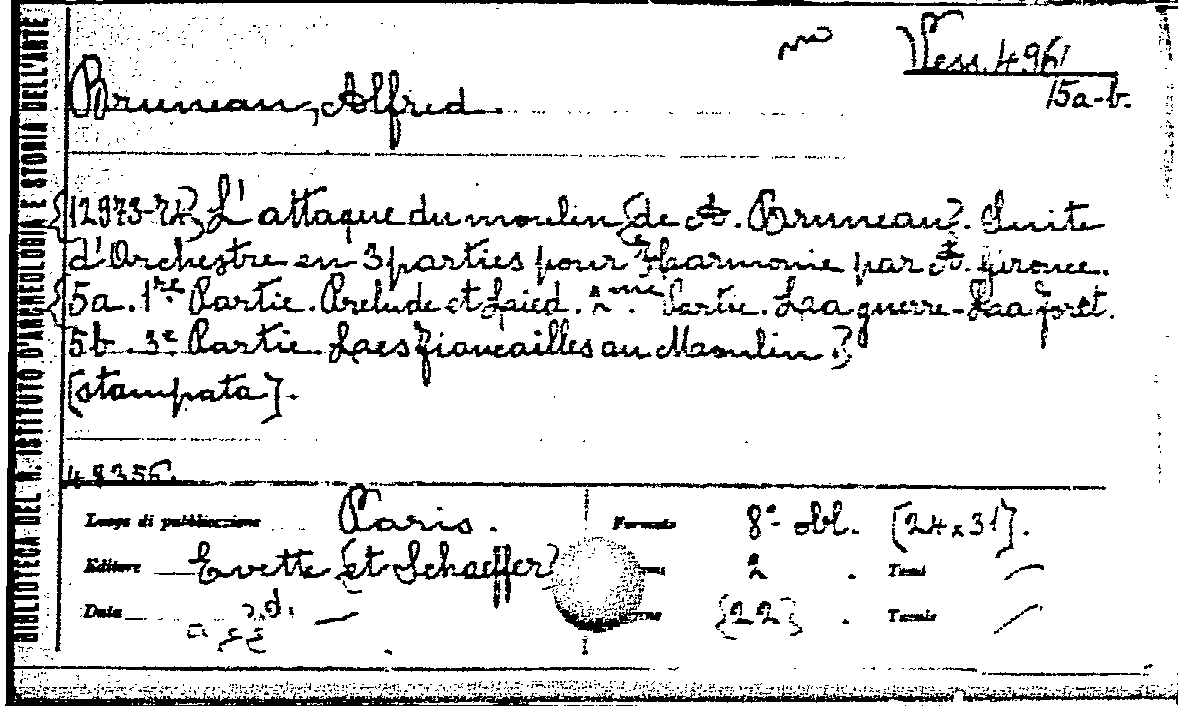 BIBLIOTECA DEL R. ISTITUTO D'ARCHEOLOGIA E STORIA DELL'ARTE
Vess. 496
Bruneau, Alfred.
15a-b.
[12973-74] L'attaque du moulin [de A. Bruneau]. Suite
d'Orchestre en 3 parties pour Harmonie par A. Girouce.
[5a. 1re Partie. Prelude et Lied. 2me Partie. La guerre - La forêt.
5b. 3e Partie. Les fiancailles au Moulin]
[stampata].
48356.
Luogo di pubblicazione Paris. Formato 8º obl. [24x31].
Editore Evette [et Schaeffer] 2 . Tomi
Data s.d. [22] . Tomis